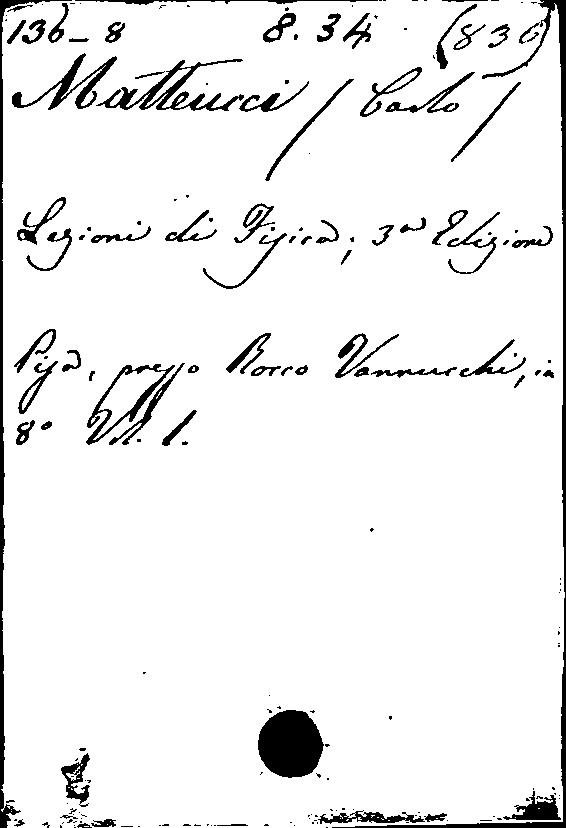 136-8 8.34 (836)
Matteucci / Carlo /
Lezioni di Fisica; 3ª Edizione
Pisa, presso Rocco Vannucchi, in
8º Vol. 1.